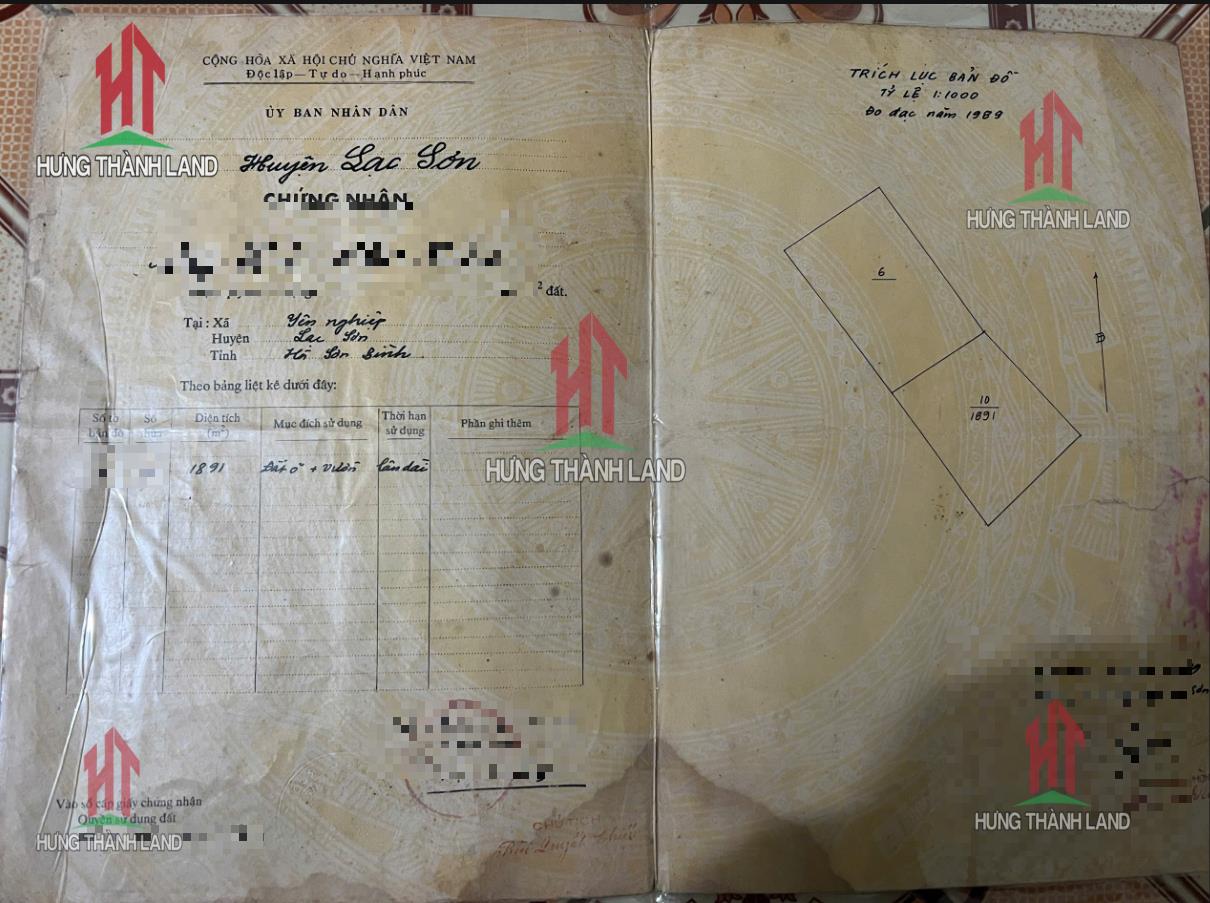 CỘNG HÒA XÃ HỘI CHỦ NGHĨA VIỆT NAM
Độc lập — Tự do — Hạnh phúc
ỦY BAN NHÂN DÂN
Huyện Lạc Sơn
CHỨNG NHẬN
² đất.
Tại : Xã Yên nghiệp
Huyện Lạc Sơn
Tỉnh Hà Sơn Bình
Theo bảng liệt kê dưới đây:
Số tờ bản đồ Số thửa Diện tích (m²) Mục đích sử dụng Thời hạn sử dụng Phần ghi thêm
1891 Đất ở + vườn lâu dài
Vào sổ cấp giấy chứng nhận
Quyền sử dụng đất
CHỦ TỊCH
TRÍCH LỤC BẢN ĐỒ
TỶ LỆ 1:1000
Đo đạc năm 1989
6
B
10
1891
HƯNG THÀNH LAND
HƯNG THÀNH LAND
HƯNG THÀNH LAND
HƯNG THÀNH LAND
HƯNG THÀNH LAND